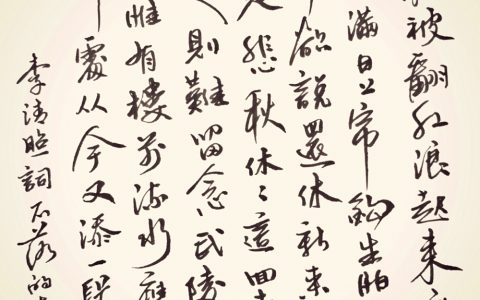 被翻红浪起来
滿日上帘鉤生怕
欲說還休新来
悲秋休〻這回去
則難留念武陵
惟有樓前流水應
處从今又添一段
李清照詞不落的